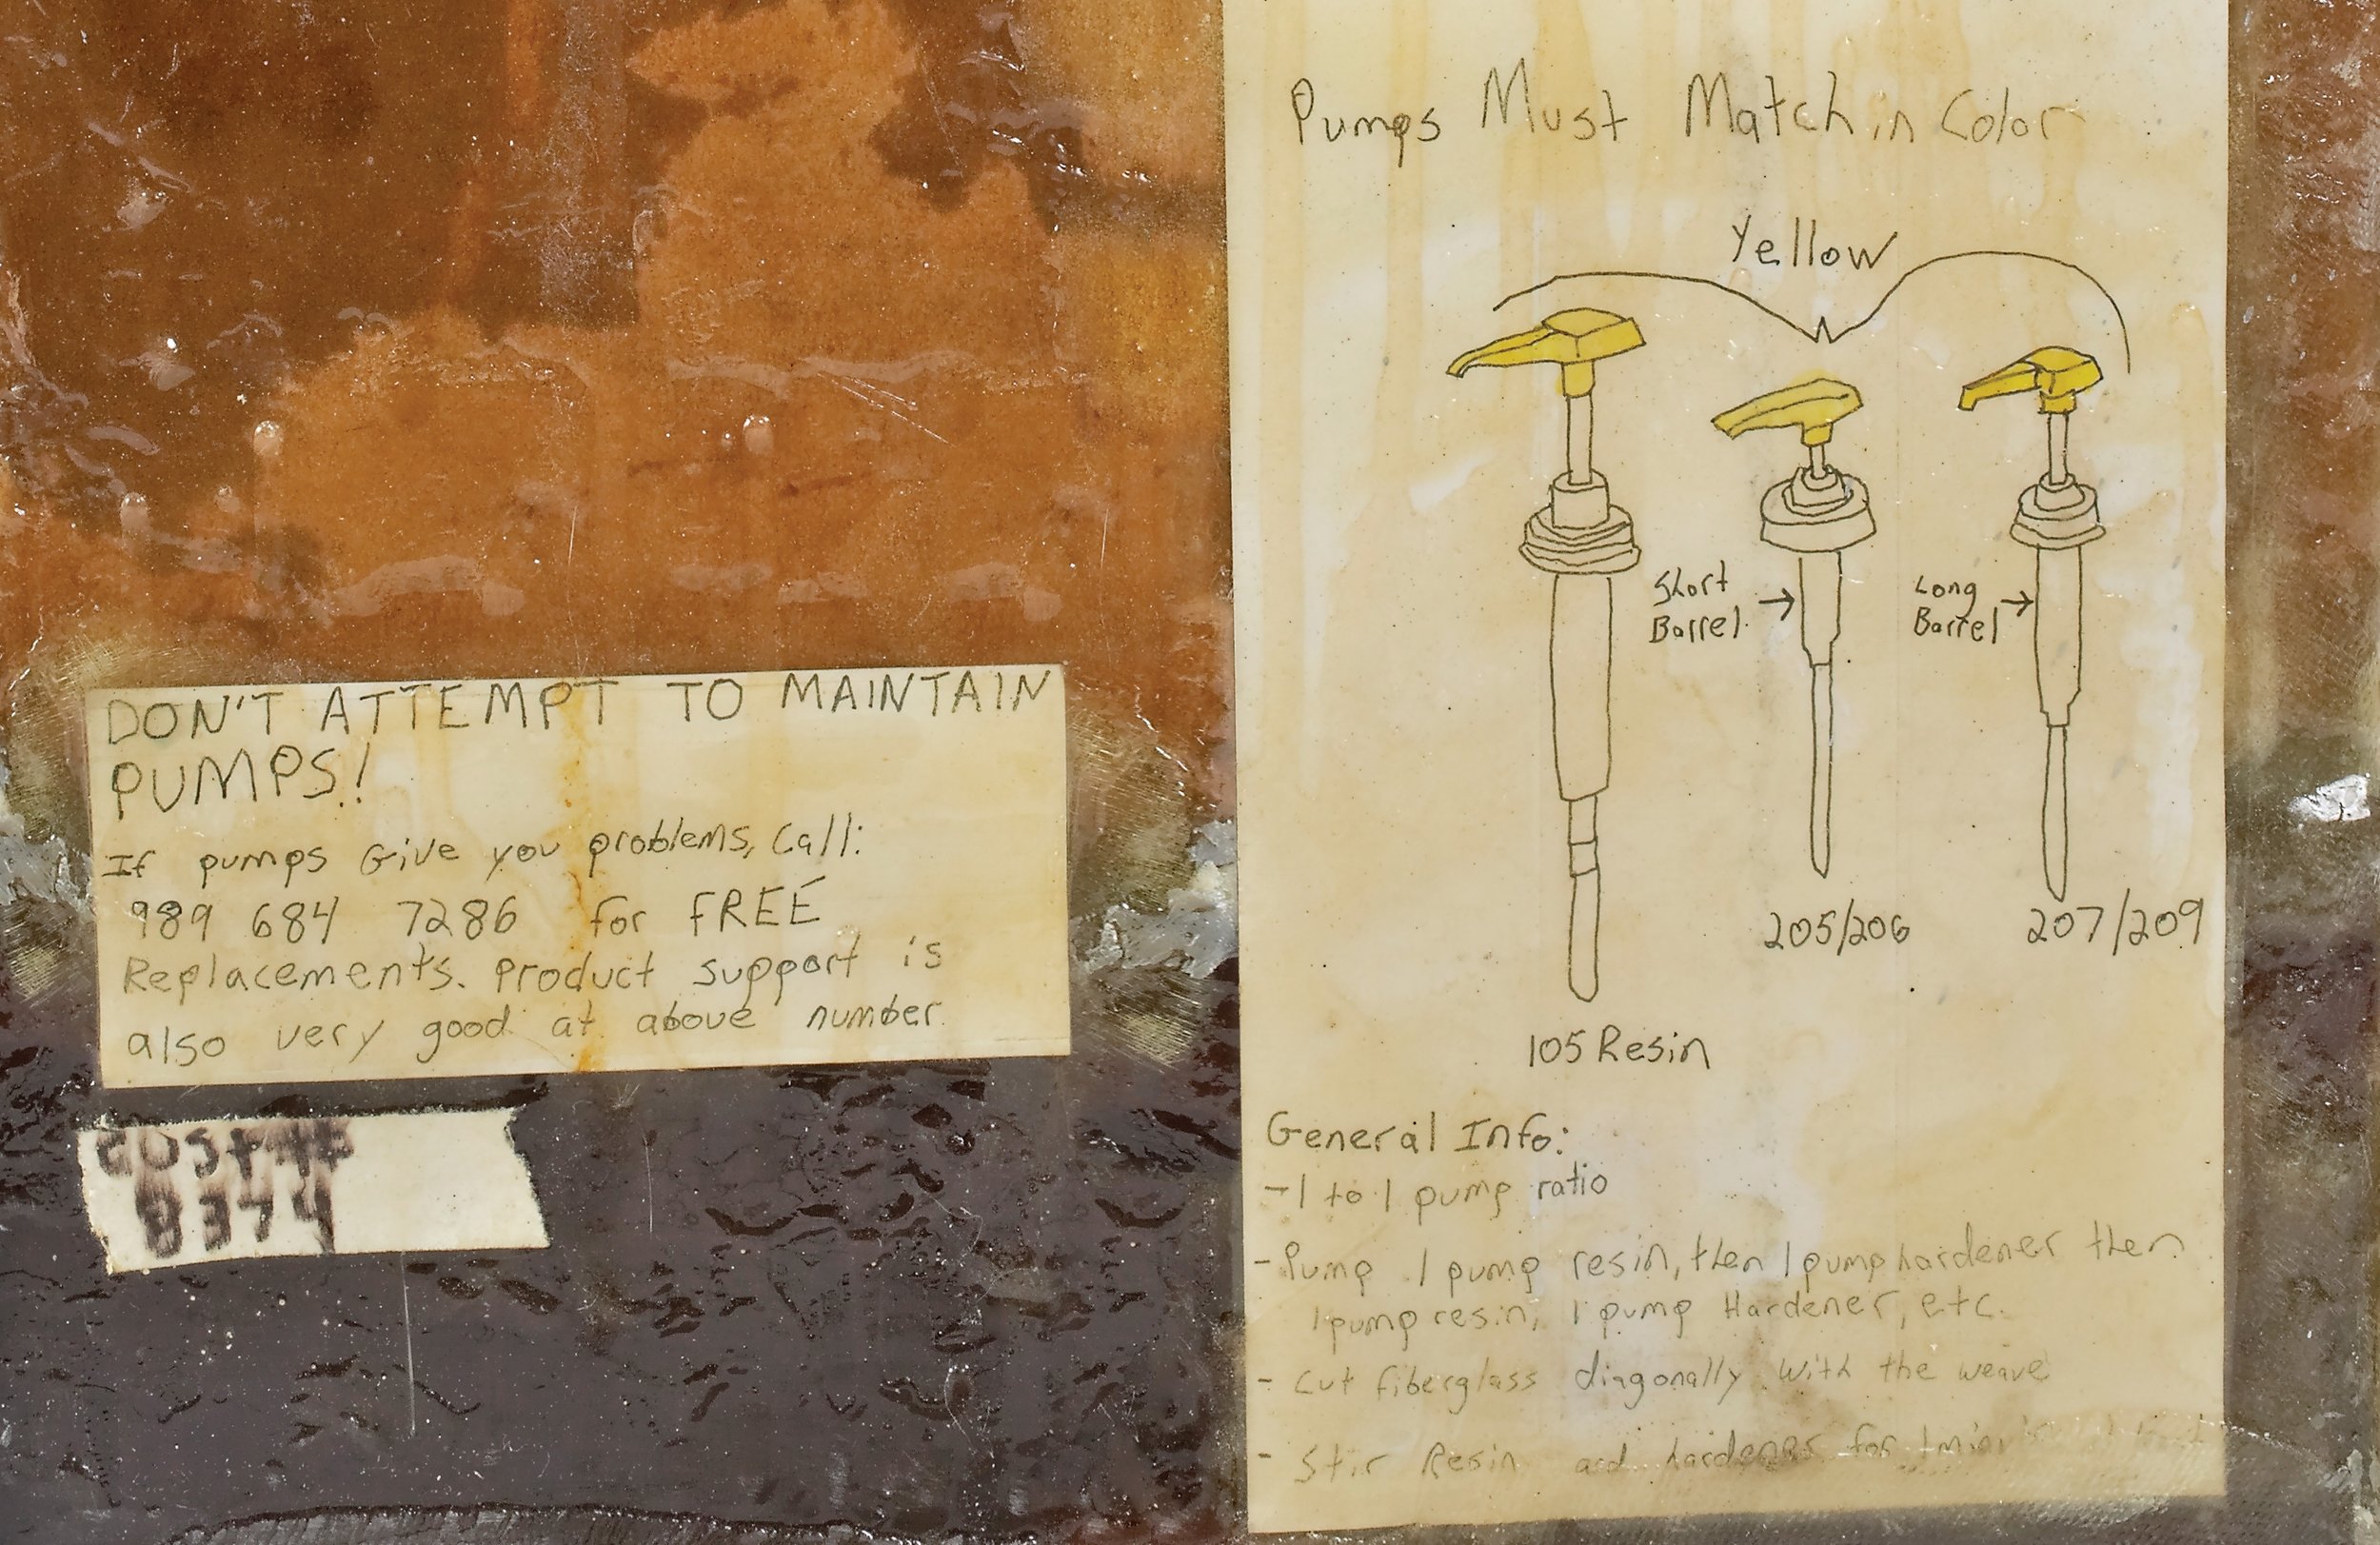 DON'T ATTEMPT TO MAINTAIN
PUMPS!
If pumps Give you problems, Call:
989 684 7286 for FREE
Replacements. Product support is
also very good at above number.
8374
Pumps Must Match in Color
Yellow
Short
Barrel
Long
Barrel
205/206
207/209
105 Resin
General Info:
- 1 to 1 pump ratio
- Pump 1 pump resin, then 1 pump hardener then
1 pump resin, 1 pump Hardener, etc.
- Cut fiberglass diagonally with the weave
- Stir Resin and hardener for 1 min